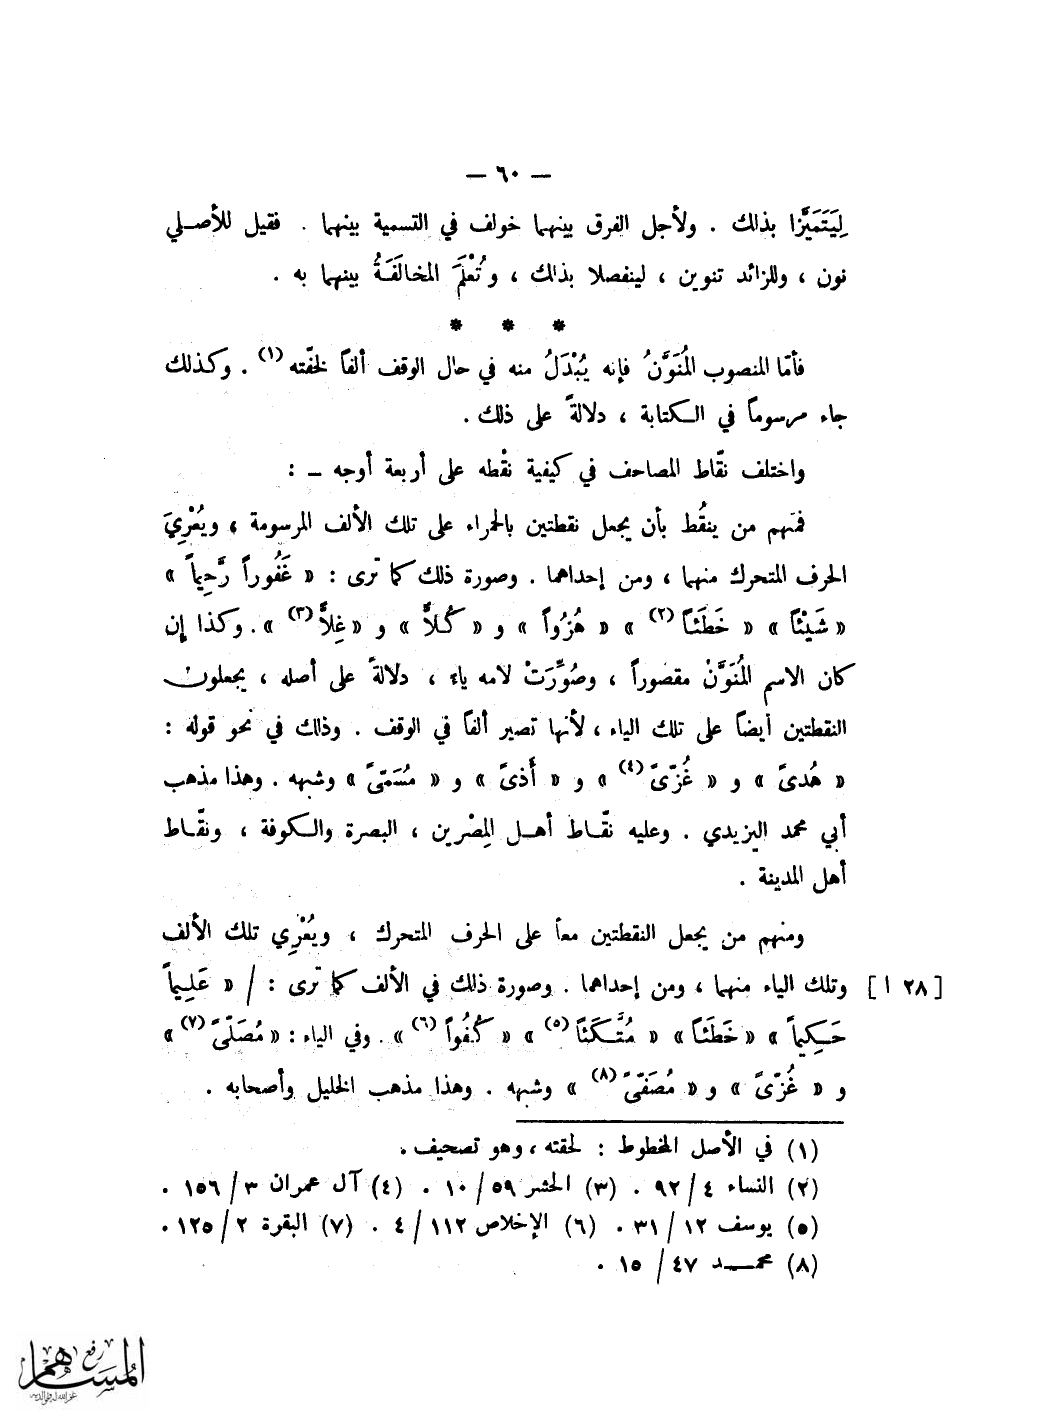 — ٦٠ —
لِيَتَمَيَّزا بذلك . ولأجل الفرق بينهما خولف في التسمية بينهما . فقيل للأصلي
نون ، وللزائد تنوين ، لينفصلا بذلك ، وتُعْلَمَ المخالَفَةُ بينهما به .
* * *
فأمّا المنصوب المُنَوَّنُ فإنه يُبْدَلُ منه في حال الوقف ألفاً لخفّته (١) . وكذلك
جاء مرسوماً في الكتابة ، دلالةً على ذلك .
واختلف نقّاط المصاحف في كيفية نقْطه على أربعة أوجه ــ :
فمنهم من ينقُط بأن يجعل نقطتين بالحمراء على تلك الألف المرسومة ، ويُعْرِيَ
الحرف المتحرك منهما ، ومن إحداهما . وصورة ذلك كما ترى : « غَفُوراً رَّحِيماً »
« شَيْئاً » « خَطَئاً (٢) » « هُزُواً » و « كُلاًّ » و « غِلاًّ (٣) » . وكذا إن
كان الاسم المُنَوَّنْ مقصوراً ، وصُوِّرَتْ لامه ياء ، دلالةً على أصله ، يجعلون
النقطتين أيضاً على تلك الياء ، لأنها تصير ألفاً في الوقف . وذلك في نحو قوله :
« هُدىً » و « غُزّىً (٤) » و « أَذىً » و « مُسَمّىً » وشبهه . وهذا مذهب
أبي محمد اليزيدي . وعليه نقّاط أهل المِصْرين ، البصرة والكوفة ، ونقّاط
أهل المدينة .
ومنهم من يجعل النقطتين معاً على الحرف المتحرك ، ويُعْرِي تلك الألف
[ ٢٨ ا ] وتلك الياء منهما ، ومن إحداهما . وصورة ذلك في الألف كما ترى : / « عَلِيماً
حَكِيماً » « خَطَئاً » « مُتَّكَئاً (٥) » « كُفُواً (٦) » . وفي الياء : « مُصَلّىً (٧) »
و « غُزّىً » و « مُصَفّىً (٨) » وشبهه . وهذا مذهب الخليل وأصحابه .
(١) في الأصل المخطوط : لحقته ، وهو تصحيف .
(٢) النساء ٤ / ٩٢ . (٣) الحشر ٥٩ / ١٠ . (٤) آل عمران ٣ / ١٥٦ .
(٥) يوسف ١٢ / ٣١ . (٦) الإخلاص ١١٢ / ٤ . (٧) البقرة ٢ / ١٢٥ .
(٨) محمد ٤٧ / ١٥ .
رفع
المساهم